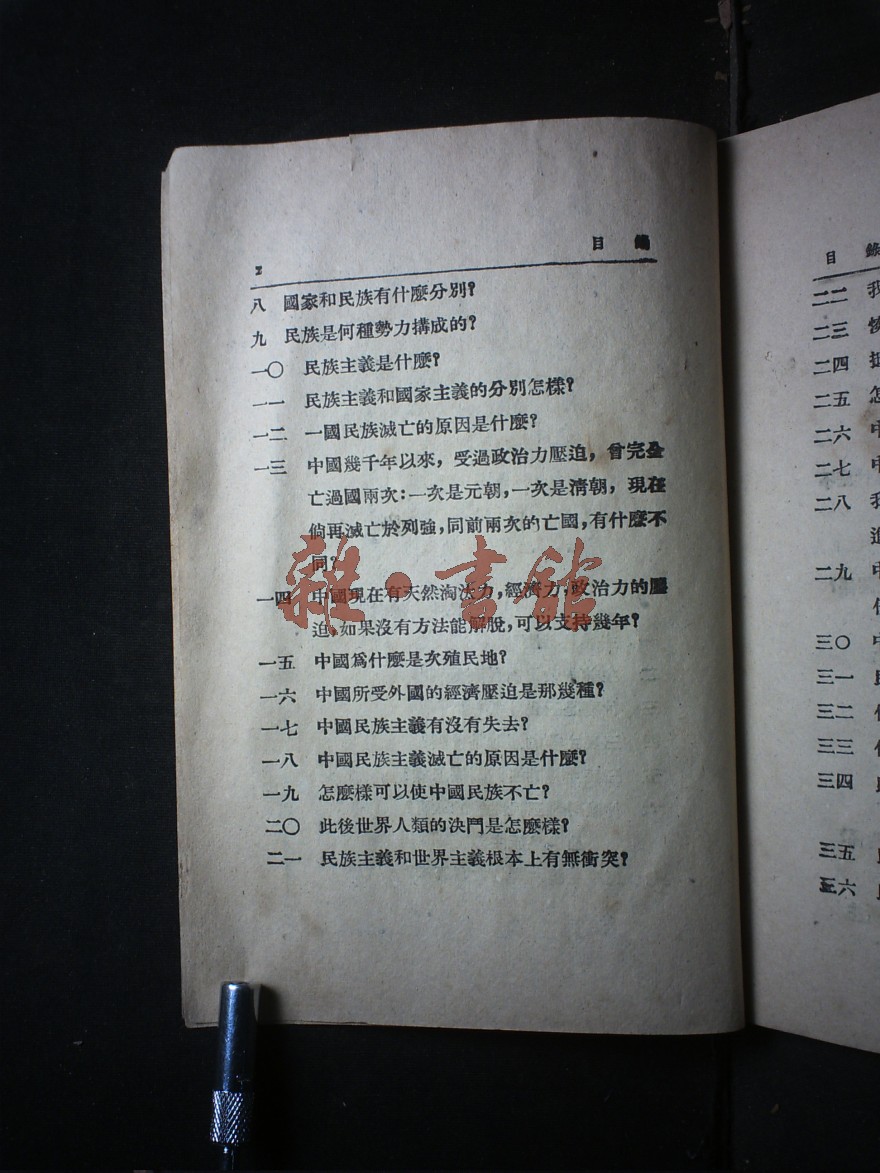 2 目錄
八 國家和民族有什麼分別?
九 民族是何種勢力搆成的?
一〇 民族主義是什麼?
一一 民族主義和國家主義的分別怎樣?
一二 一國民族滅亡的原因是什麼?
一三 中國幾千年以來,受過政治力壓迫,曾完全
亡過國兩次:一次是元朝,一次是清朝,現在
倘再滅亡於列強,同前兩次的亡國,有什麼不
同?
一四 中國現在有天然淘汰力,經濟力,政治力的壓
迫,如果沒有方法能解脫,可以支持幾年?
一五 中國爲什麼是次殖民地?
一六 中國所受外國的經濟壓迫是那幾種?
一七 中國民族主義有沒有失去?
一八 中國民族主義滅亡的原因是什麼?
一九 怎麼樣可以使中國民族不亡?
二〇 此後世界人類的決鬥是怎麼樣?
二一 民族主義和世界主義根本上有無衝突?
雜·書館
目錄
二二 我
二三
二四
二五 怎
二六 中
二七 中
二八 我
進
二九 中
三〇 中
三一 民
三二
三三
三四
三五
三六